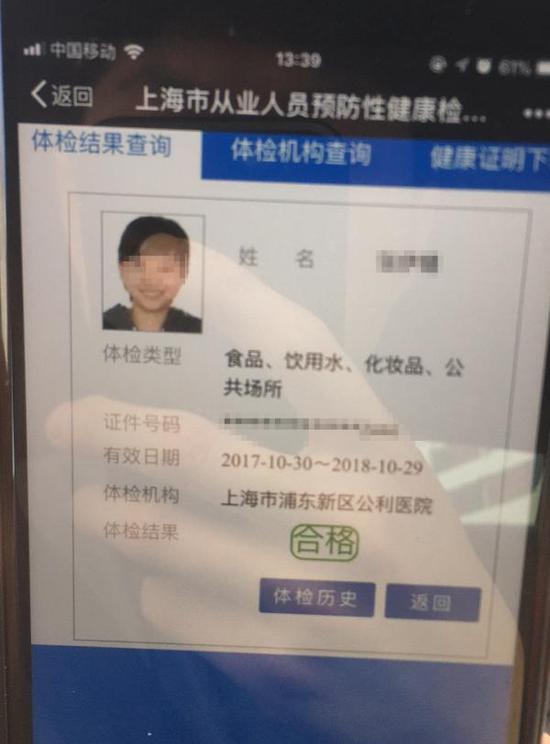 中国移动
13:39
61%
返回
上海市从业人员预防性健康检...
体检结果查询
体检机构查询
健康证明下
姓 名
体检类型
食品、饮用水、化妆品、公
共场所
证件号码
有效日期
2017-10-30～2018-10-29
体检机构
上海市浦东新区公利医院
体检结果
合格
体检历史
返回